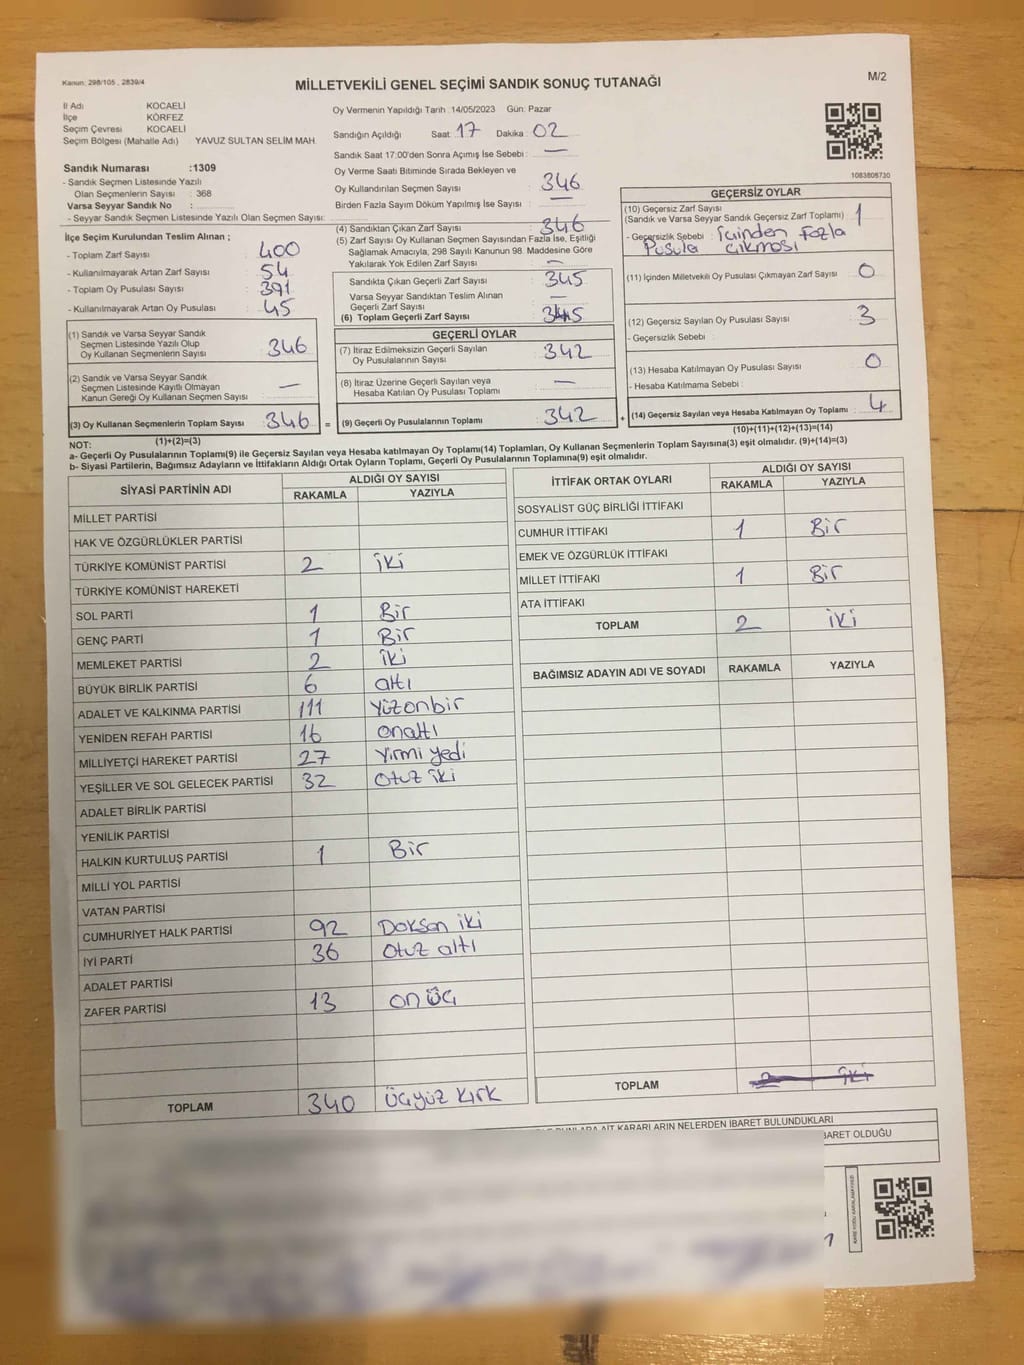 Kanun: 298/105 , 2839/4
MİLLETVEKİLİ GENEL SEÇİMİ SANDIK SONUÇ TUTANAĞI
M/2
İl Adı KOCAELİ
İlçe KÖRFEZ
Seçim Çevresi KOCAELİ
Seçim Bölgesi (Mahalle Adı) YAVUZ SULTAN SELİM MAH.
Sandık Numarası :1309
- Sandık Seçmen Listesinde Yazılı
Olan Seçmenlerin Sayısı : 368
Varsa Seyyar Sandık No :
- Seyyar Sandık Seçmen Listesinde Yazılı Olan Seçmen Sayısı:
Oy Vermenin Yapıldığı Tarih : 14/05/2023 Gün: Pazar
Sandığın Açıldığı Saat : 17 Dakika : 02
Sandık Saat 17:00'den Sonra Açımış İse Sebebi : —
Oy Verme Saati Bitiminde Sırada Bekleyen ve
Oy Kullandırılan Seçmen Sayısı : 346
Birden Fazla Sayım Döküm Yapılmış İse Sayısı : —
1083808730
İlçe Seçim Kurulundan Teslim Alınan ;
- Toplam Zarf Sayısı : 400
- Kullanılmayarak Artan Zarf Sayısı : 54
- Toplam Oy Pusulası Sayısı : 391
- Kullanılmayarak Artan Oy Pusulası : 45
(1) Sandık ve Varsa Seyyar Sandık
Seçmen Listesinde Yazılı Olup
Oy Kullanan Seçmenlerin Sayısı : 346
(2) Sandık ve Varsa Seyyar Sandık
Seçmen Listesinde Kayıtlı Olmayan
Kanun Gereği Oy Kullanan Seçmen Sayısı : —
(3) Oy Kullanan Seçmenlerin Toplam Sayısı : 346 =
(1)+(2)=(3)
(4) Sandıktan Çıkan Zarf Sayısı : 346
(5) Zarf Sayısı Oy Kullanan Seçmen Sayısından Fazla İse, Eşitliği
Sağlamak Amacıyla, 298 Sayılı Kanunun 98. Maddesine Göre
Yakılarak Yok Edilen Zarf Sayısı : —
Sandıkta Çıkan Geçerli Zarf Sayısı : 345
Varsa Seyyar Sandıktan Teslim Alınan
Geçerli Zarf Sayısı : —
(6) Toplam Geçerli Zarf Sayısı : 345
GEÇERLİ OYLAR
(7) İtiraz Edilmeksizin Geçerli Sayılan
Oy Pusulalarının Sayısı : 342
(8) İtiraz Üzerine Geçerli Sayılan veya
Hesaba Katılan Oy Pusulası Toplamı : —
(9) Geçerli Oy Pusulalarının Toplamı : 342 +
GEÇERSİZ OYLAR
(10) Geçersiz Zarf Sayısı
(Sandık ve Varsa Seyyar Sandık Geçersiz Zarf Toplamı) : 1
- Geçersizlik Sebebi : İçinden Fazla
Pusula çıkması
(11) İçinden Milletvekili Oy Pusulası Çıkmayan Zarf Sayısı : 0
(12) Geçersiz Sayılan Oy Pusulası Sayısı : 3
- Geçersizlik Sebebi :
(13) Hesaba Katılmayan Oy Pusulası Sayısı : 0
- Hesaba Katılmama Sebebi :
(14) Geçersiz Sayılan veya Hesaba Katılmayan Oy Toplamı : 4
(10)+(11)+(12)+(13)=(14)
NOT:
a- Geçerli Oy Pusulalarının Toplamı(9) ile Geçersiz Sayılan veya Hesaba katılmayan Oy Toplamı(14) Toplamları, Oy Kullanan Seçmenlerin Toplam Sayısına(3) eşit olmalıdır. (9)+(14)=(3)
b- Siyasi Partilerin, Bağımsız Adayların ve İttifakların Aldığı Ortak Oyların Toplamı, Geçerli Oy Pusulalarının Toplamına(9) eşit olmalıdır.
SİYASİ PARTİNİN ADI ALDIĞI OY SAYISI
RAKAMLA YAZIYLA
MİLLET PARTİSİ
HAK VE ÖZGÜRLÜKLER PARTİSİ
TÜRKİYE KOMÜNİST PARTİSİ 2 iki
TÜRKİYE KOMÜNİST HAREKETİ
SOL PARTİ 1 Bir
GENÇ PARTİ 1 Bir
MEMLEKET PARTİSİ 2 iki
BÜYÜK BİRLİK PARTİSİ 6 altı
ADALET VE KALKINMA PARTİSİ 111 Yüzonbir
YENİDEN REFAH PARTİSİ 16 onaltı
MİLLİYETÇİ HAREKET PARTİSİ 27 Yirmi yedi
YEŞİLLER VE SOL GELECEK PARTİSİ 32 Otuz iki
ADALET BİRLİK PARTİSİ
YENİLİK PARTİSİ
HALKIN KURTULUŞ PARTİSİ 1 Bir
MİLLİ YOL PARTİSİ
VATAN PARTİSİ
CUMHURİYET HALK PARTİSİ 92 Doksan iki
İYİ PARTİ 36 Otuz altı
ADALET PARTİSİ
ZAFER PARTİSİ 13 on üç
TOPLAM 340 üçyüz kırk
İTTİFAK ORTAK OYLARI ALDIĞI OY SAYISI
RAKAMLA YAZIYLA
SOSYALİST GÜÇ BİRLİĞİ İTTİFAKI
CUMHUR İTTİFAKI 1 Bir
EMEK VE ÖZGÜRLÜK İTTİFAKI
MİLLET İTTİFAKI 1 Bir
ATA İTTİFAKI
TOPLAM 2 iki
BAĞIMSIZ ADAYIN ADI VE SOYADI RAKAMLA YAZIYLA
TOPLAM 2 iki
AİT KARARLARIN NELERDEN İBARET BULUNDUKLARI
BARET OLDUĞU